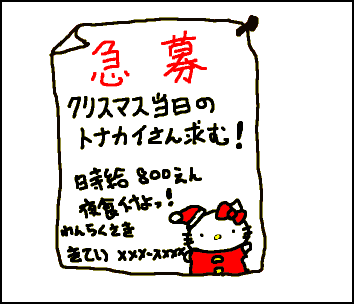 急募
クリスマス当日の
トナカイさん求む！
時給 800えん
夜食付よッ！
れんらくさき
きてい xxx-xxxx